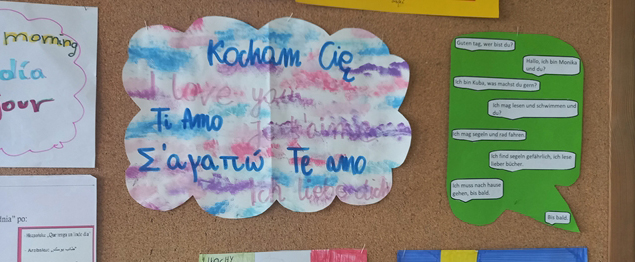 morning
día
jour
Kocham Cię
I love you
Ti Amo
Je t'aime
Σ'αγαπώ Te amo
Ich liebe dich
Guten tag, wer bist du?
Hallo, ich bin Monika
und du?
Ich bin Kuba, was machst du gern?
Ich mag lesen und schwimmen und
du?
Ich mag segeln und rad fahren.
Ich find segeln gefährlich, ich lese
lieber bücher.
Ich muss nach hause
gehen, bis bald.
Bis bald.
dnia" po:
WŁOCHY